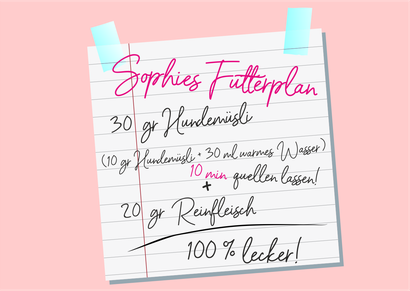 Sophies Futterplan
30 gr Hundemüsli
(10 gr Hundemüsli + 30 ml warmes Wasser)
10 min quellen lassen!
+
20 gr Reinfleisch
100 % lecker!